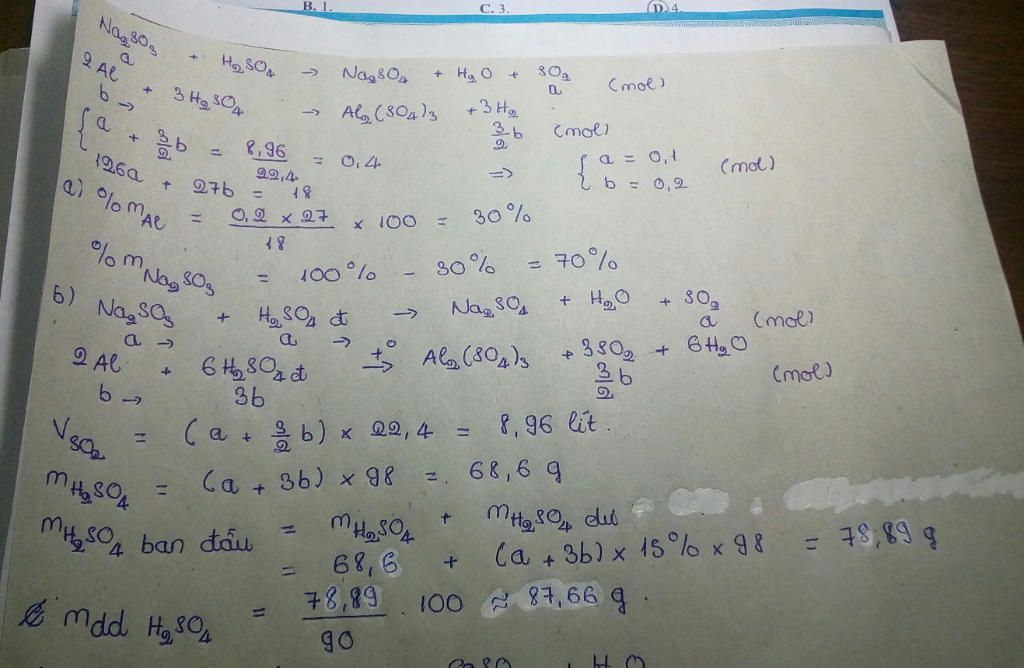 B. 1. C. 3. D. 4.
Na₂SO₃ + H₂SO₄ → Na₂SO₄ + H₂O + SO₂
a a (mol)
2Al + 3H₂SO₄ → Al₂(SO₄)₃ + 3H₂
b → 3/2 b (mol)
{ a + 3/2 b = 8,96/22,4 = 0,4 => { a = 0,1 (mol)
126a + 27b = 18 b = 0,2
a) %mAl = (0,2 × 27)/18 × 100 = 30%
%mNa₂SO₃ = 100% - 30% = 70%
b) Na₂SO₃ + H₂SO₄ đ → Na₂SO₄ + H₂O + SO₂
a → a → a (mol)
2Al + 6H₂SO₄ đ t° → Al₂(SO₄)₃ + 3SO₂ + 6H₂O
b → 3b 3/2 b (mol)
VSO₂ = (a + 3/2 b) × 22,4 = 8,96 lít.
mH₂SO₄ = (a + 3b) × 98 = 68,6 g
mH₂SO₄ ban đầu = mH₂SO₄ + mH₂SO₄ dư
= 68,6 + (a + 3b) × 15% × 98 = 78,89 g
mdd H₂SO₄ = 78,89/90 . 100 ≈ 87,66 g.